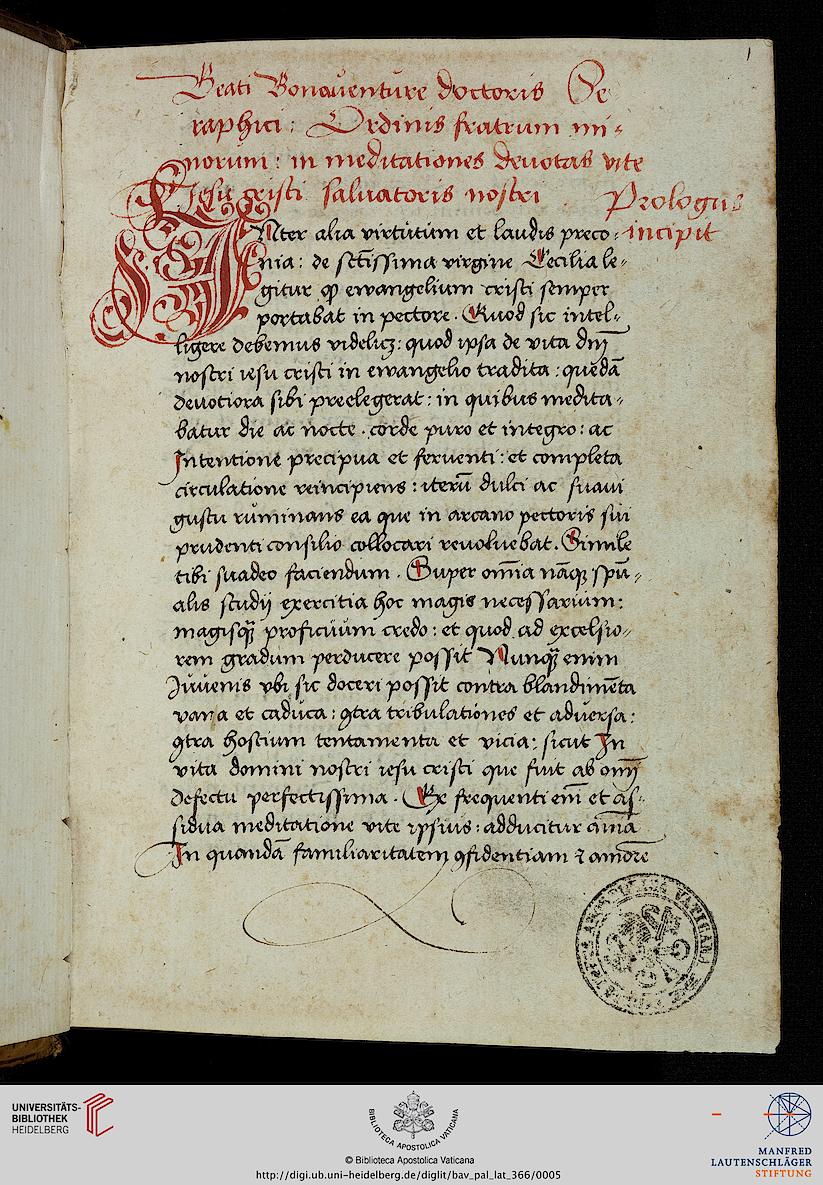 1
Beati Bonauenture doctoris Se
raphici: Ordinis fratrum mi-
norum: in meditationes deuotas vite
Jesu cristi saluatoris nostri. Prologus
incipit
INter alia virtutum et laudis preco-
nia: de sctīssima virgine Cecilia le-
gitur ꝙ ewangelium cristi semper
portabat in pectore. Quod sic intel-
ligere debemus videlicꝫ: quod ipsa de vita dnī
nostri iesu cristi in ewangelio tradita: quedā
deuotiora sibi preelegerat: in quibus medita-
batur die ac nocte. corde puro et integro: ac
Intentione precipua et feruenti: et completa
circulatione reincipiens: iterū dulci ac suaui
gustu ruminans ea que in arcano pectoris sui
prudenti consilio collocari reuoluebat. Simile
tibi suadeo faciendum. Super omīa nāqꝫ spū-
alis studij exercitia hoc magis necessarium:
magisqꝫ proficuum credo: et quod ad excelsio-
rem gradum perducere possit Nunqꝫ enim
Juuenis vbi sic doceri possit contra blandimēta
vana et caduca: ꝯtra tribulationes et aduersa:
ꝯtra hostium tentamenta et vicia: sicut In
vita domini nostri iesu cristi que fuit ab omī
defectu perfectissima. Ex frequenti eī et as-
sidua meditatione vite ipsius: adducitur aīa
In quandā familiaritatem ꝯfidentiam ⁊ amorē
UNIVERSITÄTS-
BIBLIOTHEK
HEIDELBERG
BIBLIOTECA APOSTOLICA VATICANA
© Biblioteca Apostolica Vaticana
http://digi.ub.uni-heidelberg.de/diglit/bav_pal_lat_366/0005
MANFRED
LAUTENSCHLÄGER
STIFTUNG